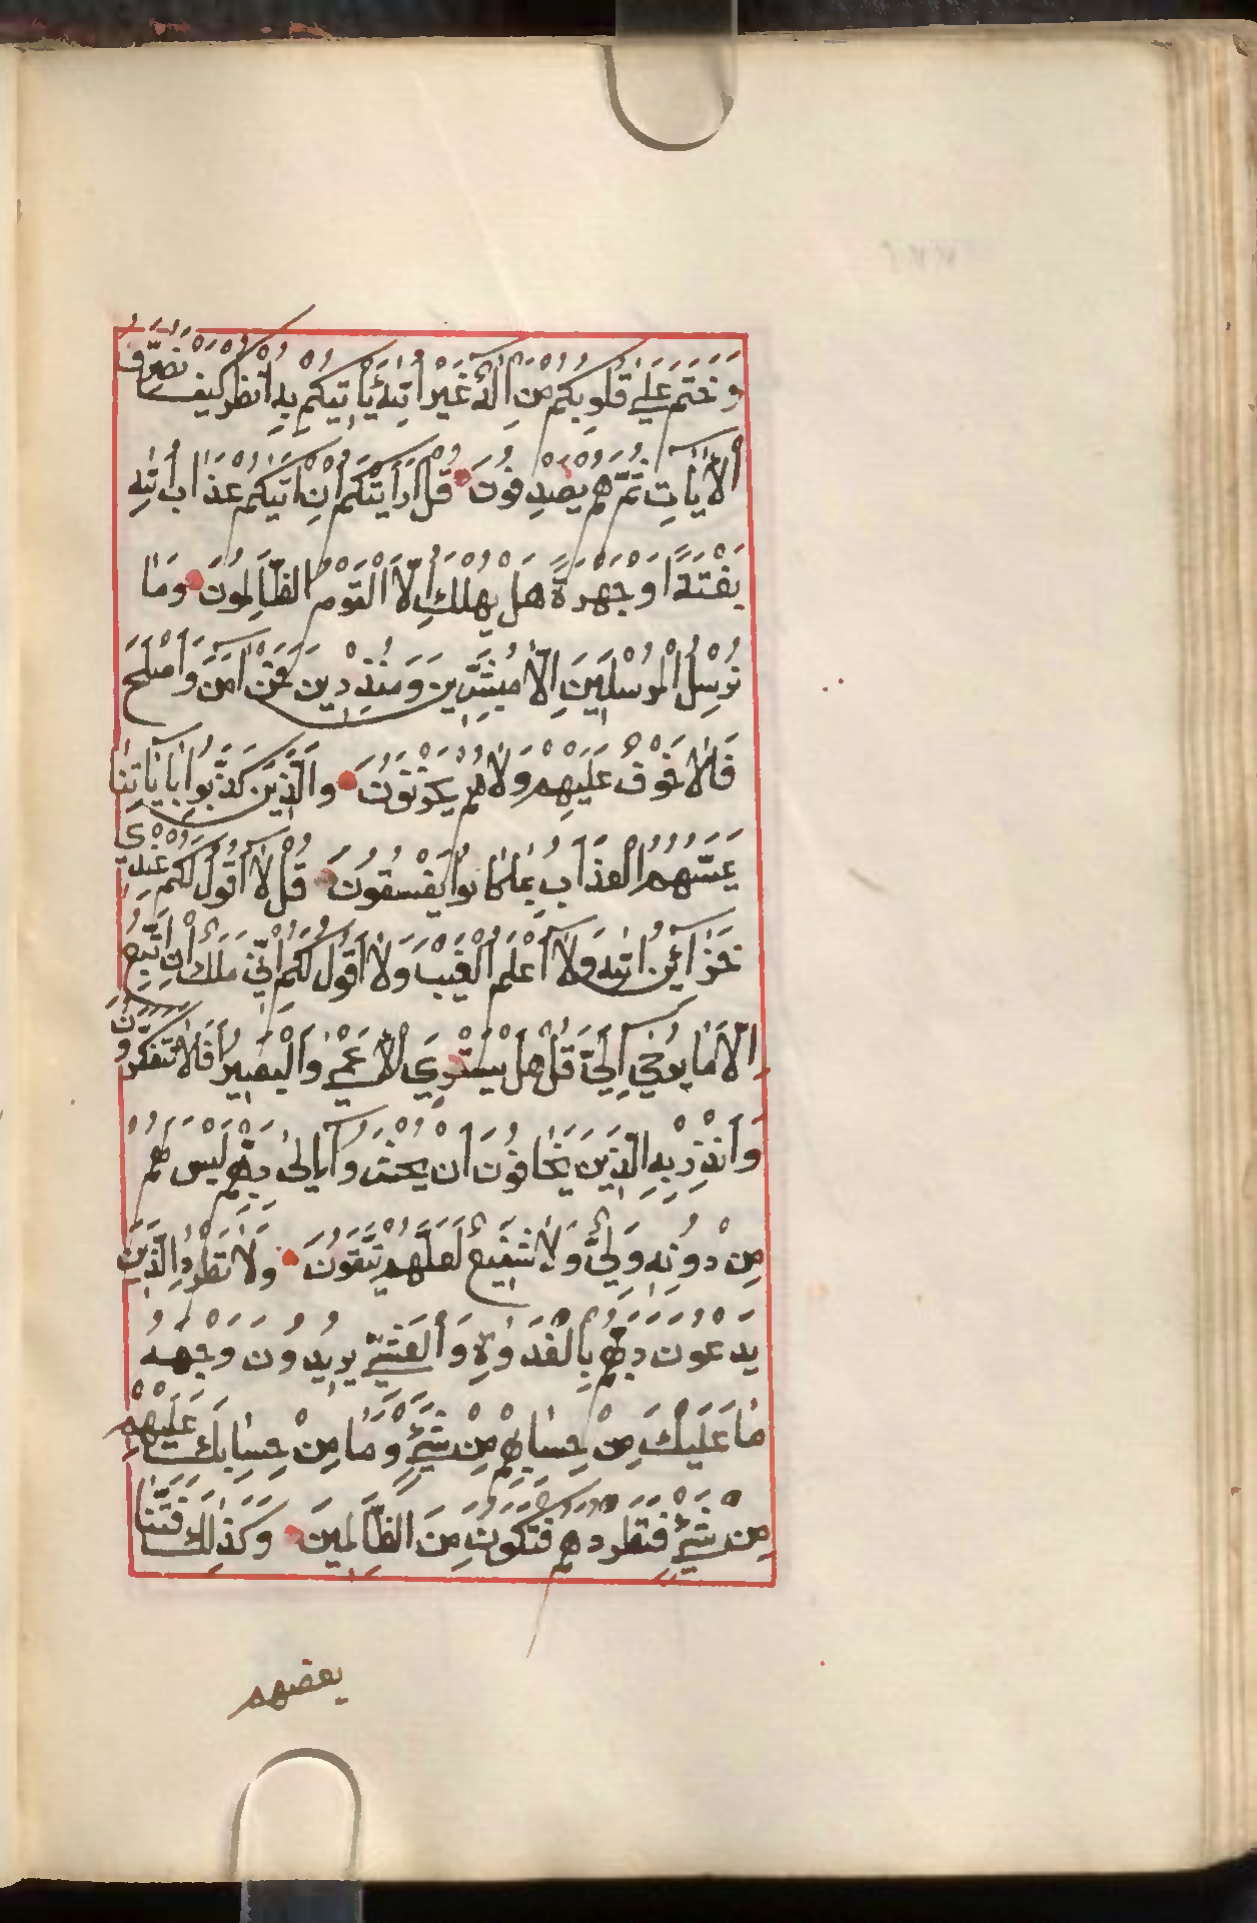 وَخَتَمَ عَلَىٰ قُلُوبِكُمْ مَنْ اِلٰهٌ غَيْرُ اللّٰهِ يَأْتِيكُمْ بِهِ اُنْظُرْ كَيْفَ نُصَرِّفُ
الْاٰيَاتِ ثُمَّ هُمْ يَصْدِفُونَ قُلْ اَرَاَيْتَكُمْ اِنْ اَتٰيكُمْ عَذَابُ اللّٰهِ
بَغْتَةً اَوْ جَهْرَةً هَلْ يُهْلَكُ اِلَّا الْقَوْمُ الظَّالِمُونَ وَمَا
نُرْسِلُ الْمُرْسَلِينَ اِلَّا مُبَشِّرِينَ وَمُنْذِرِينَ فَمَنْ اٰمَنَ وَاَصْلَحَ
فَلَا خَوْفٌ عَلَيْهِمْ وَلَا هُمْ يَحْزَنُونَ وَالَّذِينَ كَذَّبُوا بِاٰيَاتِنَا
يَمَسُّهُمُ الْعَذَابُ بِمَا كَانُوا يَفْسُقُونَ قُلْ لَا اَقُولُ لَكُمْ عِنْدِي
خَزَائِنُ اللّٰهِ وَلَا اَعْلَمُ الْغَيْبَ وَلَا اَقُولُ لَكُمْ اِنِّي مَلَكٌ اِنْ اَتَّبِعُ
اِلَّا مَا يُوحٰى اِلَيَّ قُلْ هَلْ يَسْتَوِي الْاَعْمٰى وَالْبَصِيرُ اَفَلَا تَتَفَكَّرُونَ
وَاَنْذِرْ بِهِ الَّذِينَ يَخَافُونَ اَنْ يُحْشَرُوا اِلٰى رَبِّهِمْ لَيْسَ لَهُمْ
مِنْ دُونِهِ وَلِيٌّ وَلَا شَفِيعٌ لَعَلَّهُمْ يَتَّقُونَ وَلَا تَطْرُدِ الَّذِينَ
يَدْعُونَ رَبَّهُمْ بِالْغَدٰوةِ وَالْعَشِيِّ يُرِيدُونَ وَجْهَهُ
مَا عَلَيْكَ مِنْ حِسَابِهِمْ مِنْ شَيْءٍ وَمَا مِنْ حِسَابِكَ عَلَيْهِمْ
مِنْ شَيْءٍ فَتَطْرُدَهُمْ فَتَكُونَ مِنَ الظَّالِمِينَ وَكَذٰلِكَ فَتَنَّا
بعضهم